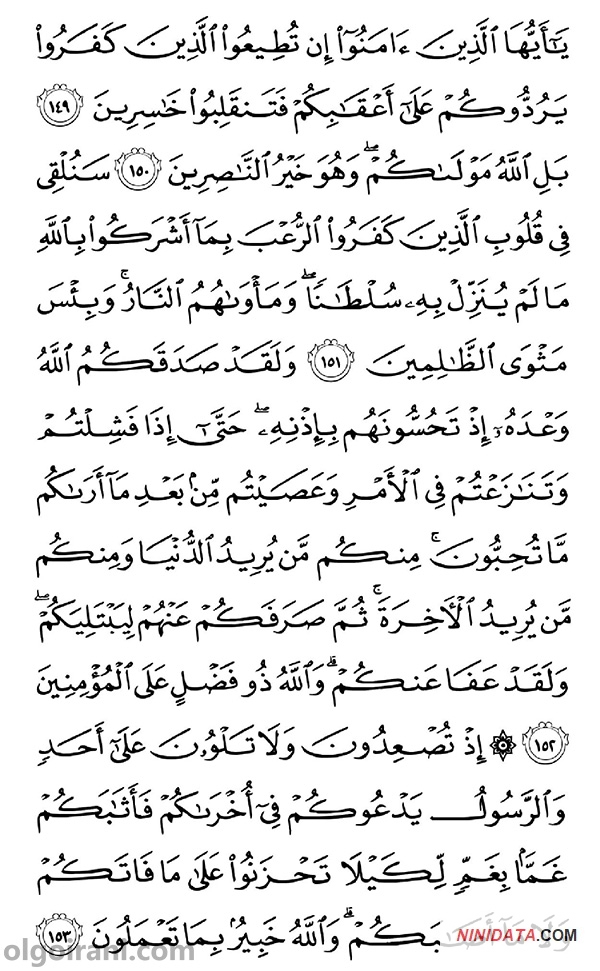 يَـٰٓأَيُّهَا ٱلَّذِينَ ءَامَنُوٓا۟ إِن تُطِيعُوا۟ ٱلَّذِينَ كَفَرُوا۟
يَرُدُّوكُمْ عَلَىٰٓ أَعْقَـٰبِكُمْ فَتَنقَلِبُوا۟ خَـٰسِرِينَ ١٤٩
بَلِ ٱللَّهُ مَوْلَىٰكُمْ ۖ وَهُوَ خَيْرُ ٱلنَّـٰصِرِينَ ١٥٠ سَنُلْقِى
فِى قُلُوبِ ٱلَّذِينَ كَفَرُوا۟ ٱلرُّعْبَ بِمَآ أَشْرَكُوا۟ بِٱللَّهِ
مَا لَمْ يُنَزِّلْ بِهِۦ سُلْطَـٰنًا ۖ وَمَأْوَىٰهُمُ ٱلنَّارُ ۚ وَبِئْسَ
مَثْوَى ٱلظَّـٰلِمِينَ ١٥١ وَلَقَدْ صَدَقَكُمُ ٱللَّهُ
وَعْدَهُۥٓ إِذْ تَحُسُّونَهُم بِإِذْنِهِۦ ۖ حَتَّىٰٓ إِذَا فَشِلْتُمْ
وَتَنَـٰزَعْتُمْ فِى ٱلْأَمْرِ وَعَصَيْتُم مِّنۢ بَعْدِ مَآ أَرَىٰكُم
مَّا تُحِبُّونَ ۚ مِنكُم مَّن يُرِيدُ ٱلدُّنْيَا وَمِنكُم
مَّن يُرِيدُ ٱلْـَٔاخِرَةَ ۚ ثُمَّ صَرَفَكُمْ عَنْهُمْ لِيَبْتَلِيَكُمْ ۖ
وَلَقَدْ عَفَا عَنكُمْ ۗ وَٱللَّهُ ذُو فَضْلٍ عَلَى ٱلْمُؤْمِنِينَ
١٥٢ ۞ إِذْ تُصْعِدُونَ وَلَا تَلْوُۥنَ عَلَىٰٓ أَحَدٍ
وَٱلرَّسُولُ يَدْعُوكُمْ فِىٓ أُخْرَىٰكُمْ فَأَثَـٰبَكُمْ
غَمًّۢا بِغَمٍّ لِّكَيْلَا تَحْزَنُوا۟ عَلَىٰ مَا فَاتَكُمْ
وَلَا مَآ أَصَـٰبَكُمْ ۗ وَٱللَّهُ خَبِيرٌۢ بِمَا تَعْمَلُونَ ١٥٣
NINIDATA.COM
olgoirani.com